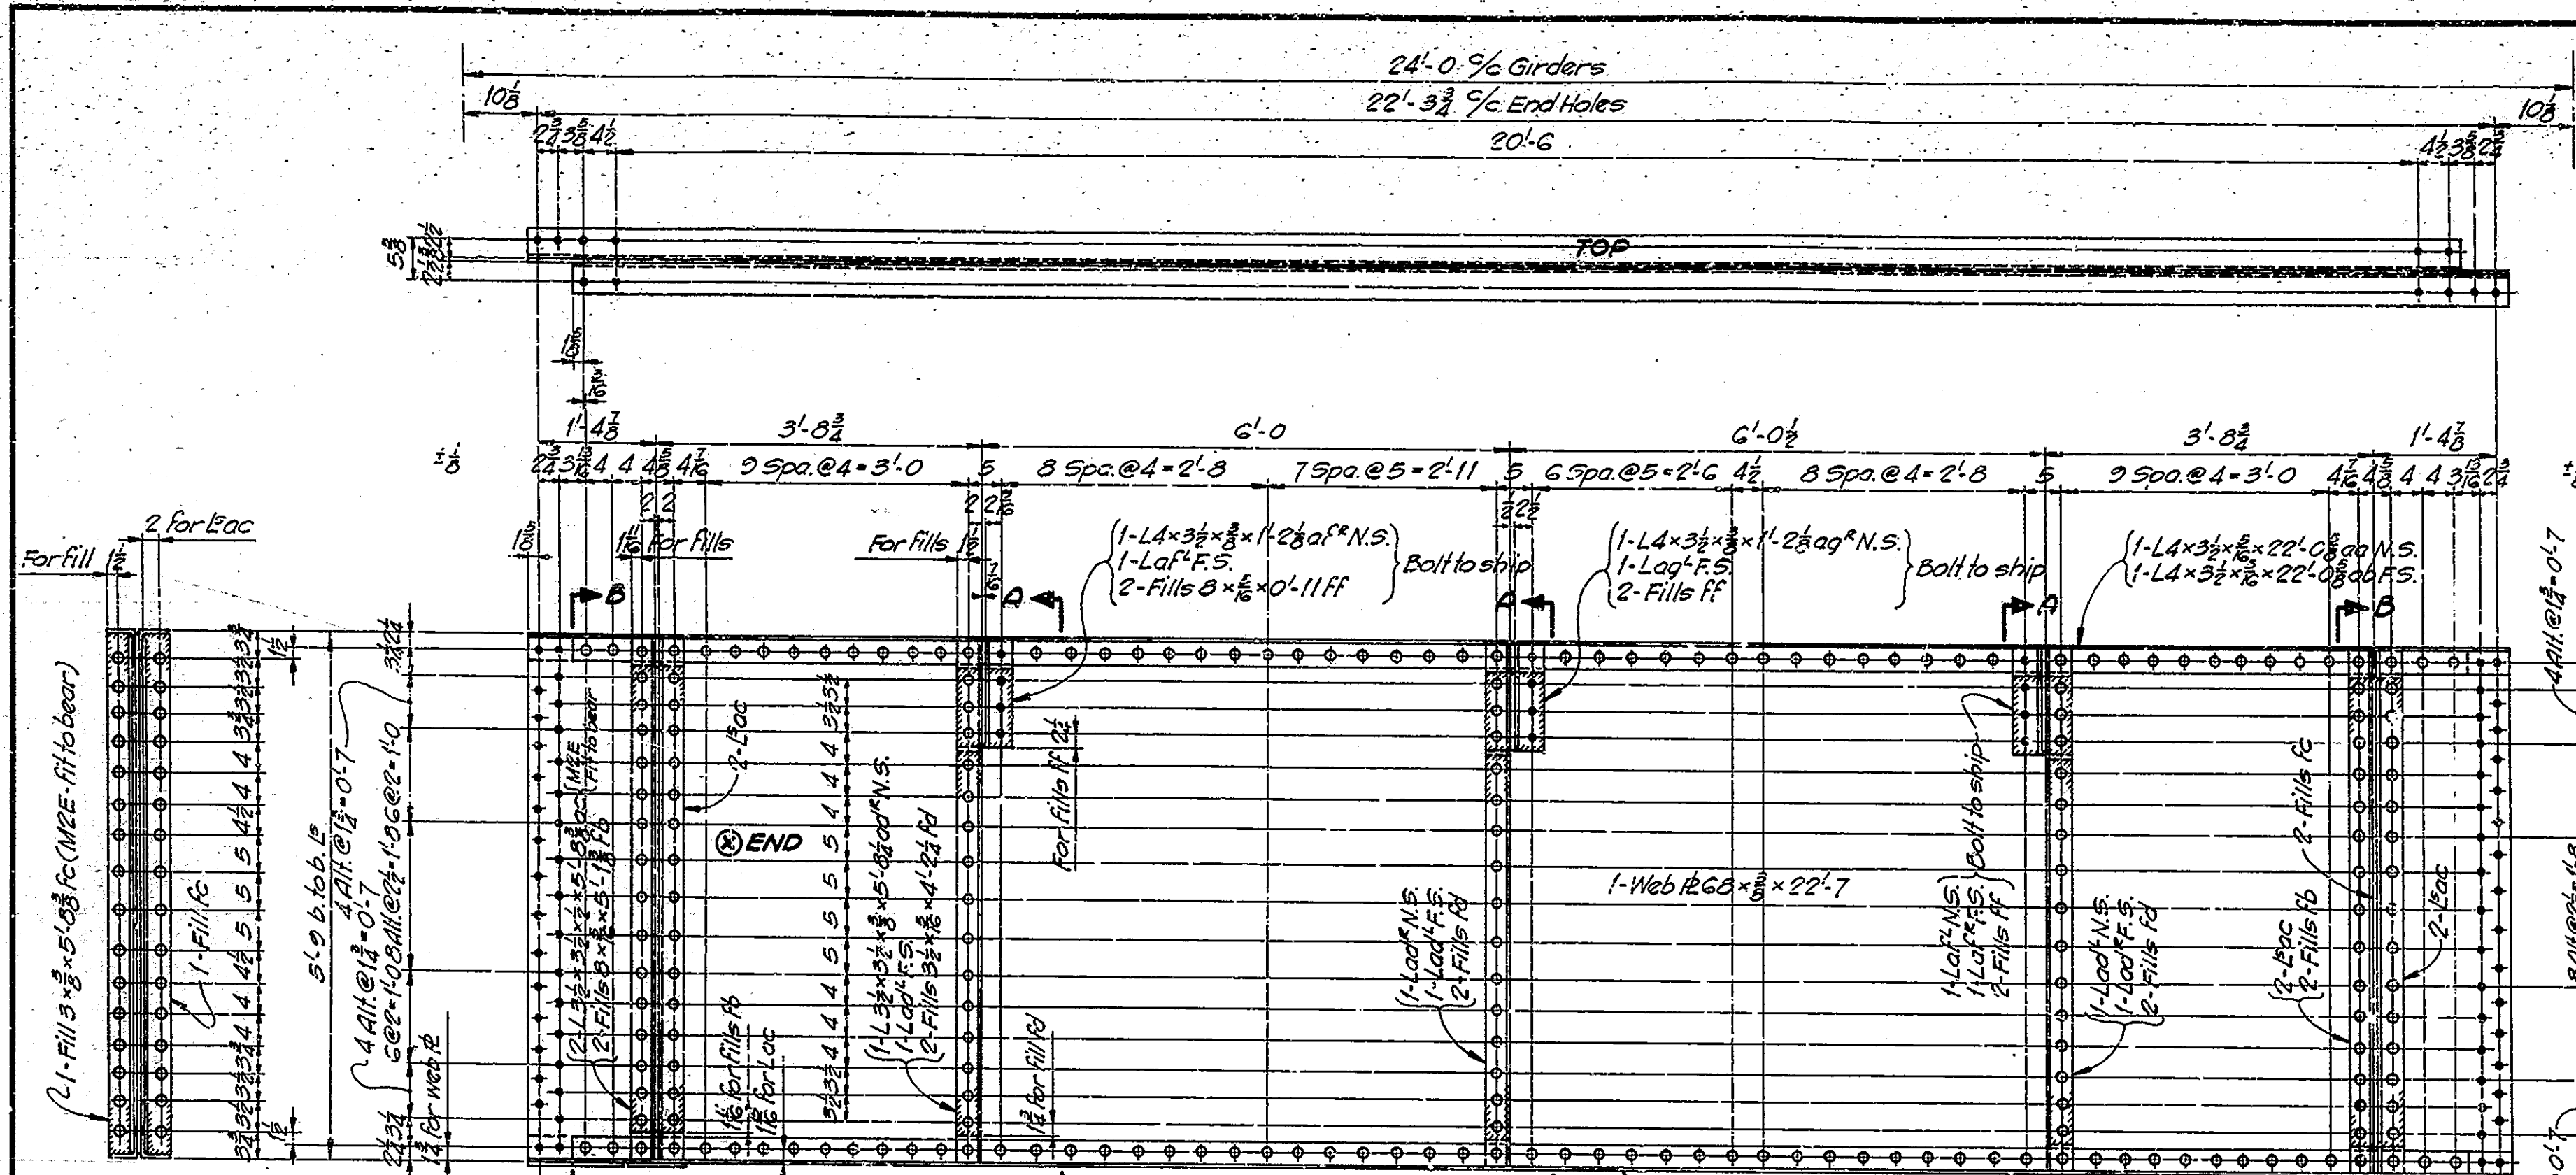 24'-0 c/c Girders
10 1/8
22'-3 3/4 c/c End Holes
10 1/8
2 3/4 3 5/8 4 1/2
20'-6
4 1/2 3 5/8 2 3/4
5 3/8
TOP
1'-4 7/8
3'-8 3/4
6'-0
6'-0 1/2
3'-8 3/4
1'-4 7/8
± 1/8
2 3/4 3 13/16 4 4 4 5/8 4 7/16
9 Spa.@4=3'-0
5
8 Spa.@4=2'-8
7 Spa.@5=2'-11
5
6 Spa.@5=2'-6
4 1/2
8 Spa.@4=2'-8
5
9 Spa.@4=3'-0
4 7/16 4 5/8 4 4 3 13/16 2 3/4
2 2
2 1/2
2 for Ls ac
For fill 1 1/2
1 5/8
1 11/16 For fills
For fills 1 1/2
1-L4×3 1/2×3/8×1'-2 1/8 af R N.S.
1-L af L F.S.
2-Fills 8×5/16×0'-11 ff
Bolt to ship
1-L4×3 1/2×3/8×1'-2 1/8 ag R N.S.
1-L ag L F.S.
2-Fills ff
Bolt to ship
1-L4×3 1/2×5/16×22'-0 5/8 aa N.S.
1-L4×3 1/2×5/16×22'-0 5/8 ab F.S.
B
A
A
A
B
1-Fill 3×3/8×5'-8 3/8 fc (M2E-fit to bear)
1-Fill fc
3 3/4 3 1/2 3 1/2 3 3/4 3 3/4 4 4 4 1/2 5 5 5 4 1/2 4 4 3 3/4 3 3/4 3 1/2 3 1/2 3 3/4
1 1/2
1 1/2
5'-9 b. to b. Ls
4 Alt.@1 3/4=0'-7
4 Alt.@1 3/4=0'-7
6@2=1'-0 8 Alt.@2 1/4=1'-8 6@2=1'-0
3 1/4 2 1/4
2 1/4 3 1/4
1 3/4 for web PL
2-L3 1/2×3 1/2×1/2×5'-8 3/8 ac (M2E Fit to bear)
2-Fills 8×5/16×5'-1 3/8 fb
2-Ls ac
1 11/16 for fills fb
for L ac
END
3 1/2 3 1/2 4 4 4 5 5 5 5 5 4 4 3 1/2 3 1/2
1-L3 1/2×3 1/2×3/8×5'-8 1/4 ad R N.S.
1-L ad L F.S.
2-Fills 3 1/2×5/16×4'-2 1/4 fd
For fills ff 2 1/2
1 3/4 for fill fd
1-L ad R N.S.
1-L ad L F.S.
2-Fills fd
1-Web PL 68×3/8×22'-7
1-L af L N.S.
1-L af R F.S.
2-Fills ff
Bolt to ship
1-L ad L N.S.
1-L ad R F.S.
2-Fills fd
2-Ls ac
2-Fills fb
2-Fills fc
2-Ls ac
4 Alt.@1 3/4=0'-7